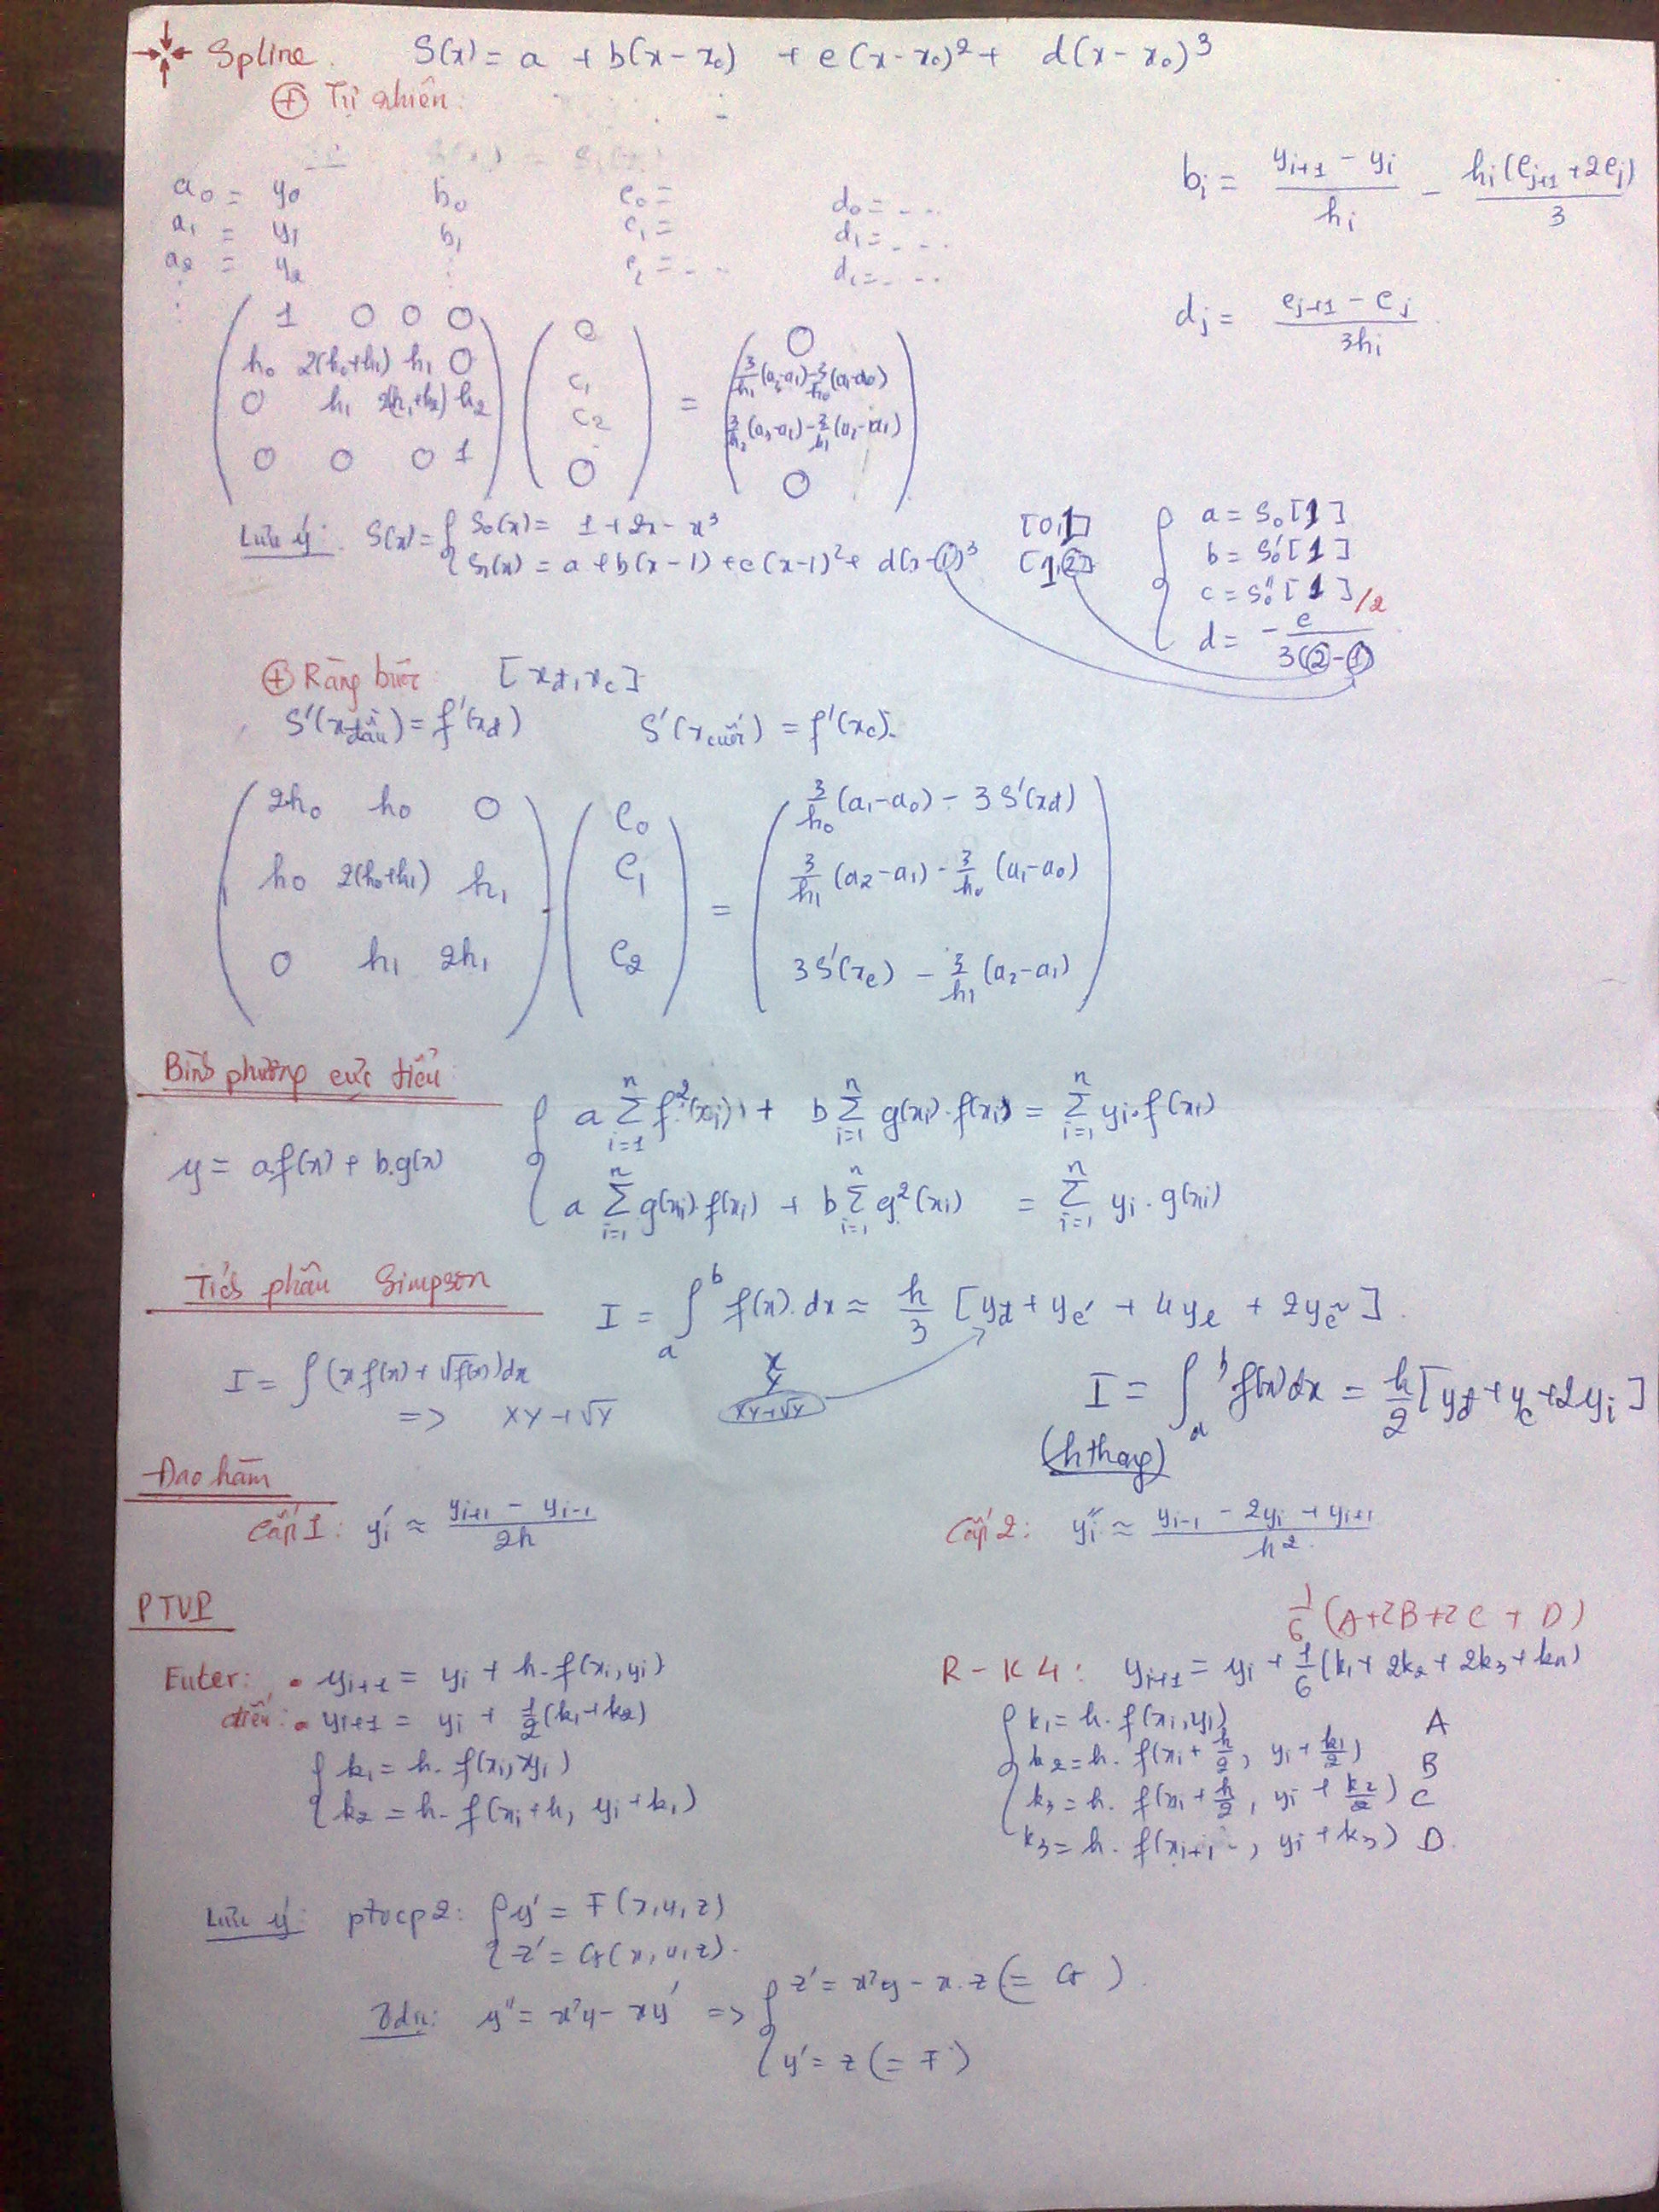 Spline. S(x) = a + b(x - x₀) + c(x - x₀)² + d(x - x₀)³
⊕ Tự nhiên:
a₀ = y₀ b₀ c₀ = d₀ = ....
a₁ = y₁ b₁ c₁ = d₁ = ....
a₂ = y₂ ⋮ c₂ = ... d₂ = ....
⋮
bⱼ = (yᵢ₊₁ - yᵢ)/hᵢ - hᵢ(cⱼ₊₁ + 2cⱼ)/3
dⱼ = (cⱼ₊₁ - cⱼ)/3hᵢ
(1 0 0 0) (0) (0)
(h₀ 2(h₀+h₁) h₁ 0) (c₁) = (3/h₁(a₂-a₁) - 3/h₀(a₁-a₀))
(0 h₁ 2(h₁+h₂) h₂) (c₂) (3/h₂(a₃-a₂) - 3/h₁(a₂-a₁))
(0 0 0 1) (0) (0)
Lưu ý: S(x) = { S₀(x) = 1 + 2x - x³ [0,1]
S₁(x) = a + b(x-1) + c(x-1)² + d(x-1)³ [1,2]
{ a = S₀[1]
b = S₀'[1]
c = S₀''[1]/2
d = -c/3(2-1)
⊕ Ràng buộc: [xđ, xc]
S'(xđầu) = f'(xđ) S'(xcuối) = f'(xc).
(2h₀ h₀ 0) (c₀) (3/h₀(a₁-a₀) - 3S'(xđ))
(h₀ 2(h₀+h₁) h₁) (c₁) = (3/h₁(a₂-a₁) - 3/h₀(a₁-a₀))
(0 h₁ 2h₁) (c₂) (3S'(xc) - 3/h₁(a₂-a₁))
Bình phương cực tiểu
y = a.f(x) + b.g(x)
{ a Σⁿᵢ₌₁ f²(xᵢ) + b Σⁿᵢ₌₁ g(xᵢ).f(xᵢ) = Σⁿᵢ₌₁ yᵢ.f(xᵢ)
a Σⁿᵢ₌₁ g(xᵢ).f(xᵢ) + b Σⁿᵢ₌₁ g²(xᵢ) = Σⁿᵢ₌₁ yᵢ.g(xᵢ)
Tích phân Simpson
I = ∫ₐᵇ f(x).dx ≈ h/3 [yđ + yc' + 4yl + 2yc̃].
I = ∫(x f(x) + √f(x))dx
=> XY + √Y
X
Y
XY+√Y
I = ∫ₐᵇ f(x)dx = h/2 [yđ + yc + 2yᵢ]
(hthang)
Đạo hàm
Cấp 1: yᵢ' ≈ (yᵢ₊₁ - yᵢ₋₁)/2h
Cấp 2: yᵢ'' ≈ (yᵢ₋₁ - 2yᵢ + yᵢ₊₁)/h²
PTVP
1/6 (A+2B+2C+D)
Euler: • yᵢ₊₁ = yᵢ + h.f(xᵢ, yᵢ)
• yᵢ₊₁ = yᵢ + 1/2(k₁+k₂)
{ k₁ = h.f(xᵢ, yᵢ)
k₂ = h.f(xᵢ+h, yᵢ+k₁)
R-K4: yᵢ₊₁ = yᵢ + 1/6(k₁ + 2k₂ + 2k₃ + k₄)
{ k₁ = h.f(xᵢ, yᵢ) A
k₂ = h.f(xᵢ + h/2, yᵢ + k₁/2) B
k₃ = h.f(xᵢ + h/2, yᵢ + k₂/2) C
k₃ = h.f(xᵢ₊₁, yᵢ + k₃) D.
Lưu ý: ptvcp2: { y' = F(x,y,z)
z' = G(x,y,z).
Vdụ: y'' = x²y - xy' => { z' = x²y - x.z (= G).
y' = z (= F)